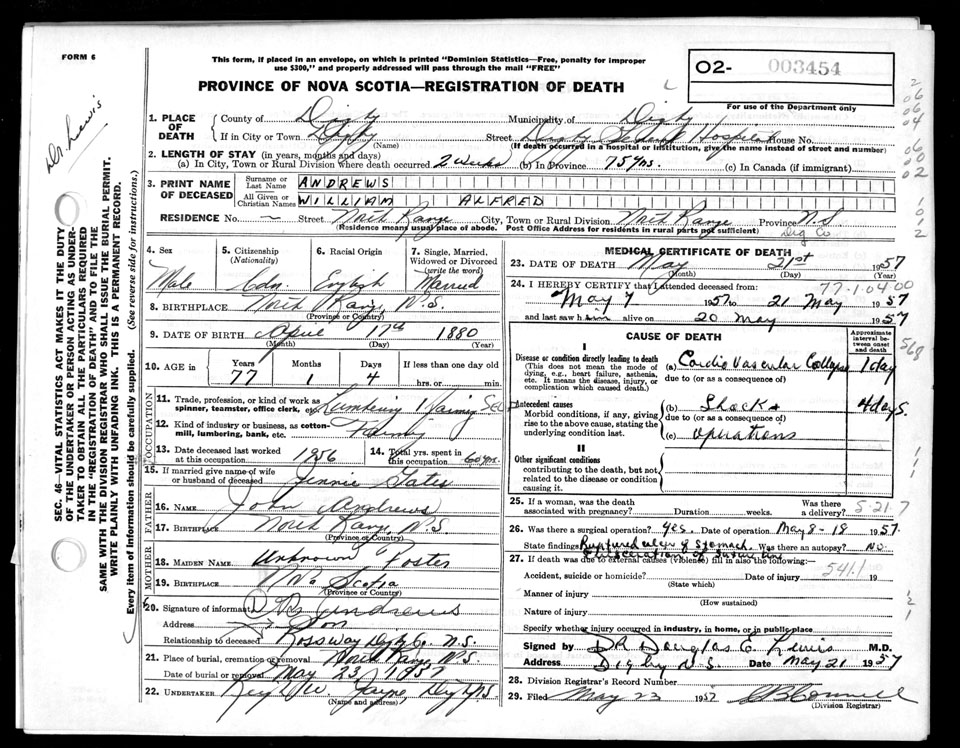 FORM 6
This form, if placed in an envelope, on which is printed "Dominion Statistics—Free, penalty for improper
use $300," and properly addressed will pass through the mail "FREE"
PROVINCE OF NOVA SCOTIA—REGISTRATION OF DEATH
O2- 003454
For use of the Department only
Dr. Lewis
SEC. 46—VITAL STATISTICS ACT MAKES IT THE DUTY
OF THE UNDERTAKER OR PERSON ACTING AS UNDER-
TAKER TO OBTAIN ALL THE PARTICULARS REQUIRED
IN THE "REGISTRATION OF DEATH" AND TO FILE THE
SAME WITH THE DIVISION REGISTRAR WHO SHALL ISSUE THE BURIAL PERMIT.
WRITE PLAINLY WITH UNFADING INK. THIS IS A PERMANENT RECORD.
Every item of Information should be carefully supplied. (See reverse side for instructions.)
1. PLACE OF DEATH
County of Digby Municipality of Digby
If in City or Town Digby (Name) Street Digby General Hospital House No.
(If death occurred in a hospital or institution, give the name instead of street and number)
2. LENGTH OF STAY (in years, months and days)
(a) In City, Town or Rural Division where death occurred 2 weeks (b) In Province 75 yrs. (c) In Canada (if immigrant)
3. PRINT NAME OF DECEASED
Surname or Last Name ANDREWS
All Given or Christian Names WILLIAM ALFRED
RESIDENCE No. — Street North Range City, Town or Rural Division North Range Province N.S.
(Residence means usual place of abode. Post Office Address for residents in rural parts not sufficient) Dig Co
4. Sex Male
5. Citizenship (Nationality) Cdn.
6. Racial Origin English
7. Single, Married, Widowed or Divorced (write the word) Married
8. BIRTHPLACE North Range N.S.
(Province or Country)
9. DATE OF BIRTH April 17th 1880
(Month) (Day) (Year)
10. AGE in Years 77 Months 1 Days 4 If less than one day old hrs. or min.
OCCUPATION
11. Trade, profession, or kind of work as
spinner, teamster, office clerk, etc. Lumbering
12. Kind of industry or business, as cotton-
mill, lumbering, bank, etc.
13. Date deceased last worked
at this occupation 1956
14. Total yrs. spent in
this occupation 60 yrs.
15. If married give name of wife
or husband of deceased Jennie Gates
FATHER
16. NAME John Andrews
17. BIRTHPLACE North Range N.S.
(Province or Country)
MOTHER
18. MAIDEN NAME Unknown Foster
19. BIRTHPLACE Scotia
(Province or Country)
20. Signature of informant Andrews
Address Son
Relationship to deceased Rossway Digby Co. N.S.
21. Place of burial, cremation or removal North Range N.S.
Date of burial or removal May 23, 1957
22. UNDERTAKER Jayne, Digby N.S.
(Name and address)
MEDICAL CERTIFICATE OF DEATH
23. DATE OF DEATH May 21st 1957
(Month) (Day) (Year)
24. I HEREBY CERTIFY that I attended deceased from: 77-1-04 00
May 7 1957 to 21 May 1957
and last saw him alive on 20 May 1957
CAUSE OF DEATH
Approximate interval between onset and death
568
I
Disease or condition directly leading to death
(This does not mean the mode of
dying, e.g., heart failure, asthenia,
etc. It means the disease, injury, or
complication which caused death.)
(a) Cardio Vascular Collapse 1 day
due to (or as a consequence of)
Antecedent causes
Morbid conditions, if any, giving
rise to the above cause, stating the
underlying condition last.
(b) Shock + 4 days.
due to (or as a consequence of)
(c) operations
II
Other significant conditions
contributing to the death, but not
related to the disease or condition
causing it.
25. If a woman, was the death
associated with pregnancy? Duration weeks. Was there a delivery? 5-21-7
26. Was there a surgical operation? yes. Date of operation May 8-18 1957.
State findings Ruptured ulcer of Stomach. Was there an autopsy? No
27. If death was due to external causes (violence) fill in also the following:
Accident, suicide or homicide? (State which) Date of injury 541.1 19
Manner of injury (How sustained)
Nature of injury
Specify whether injury occurred in industry, in home, or in public place
Signed by DR Douglas E. Lewis M.D.
Address Digby N.S. Date May 21 1957
28. Division Registrar's Record Number
29. Filed May 23 1957
(Division Registrar)